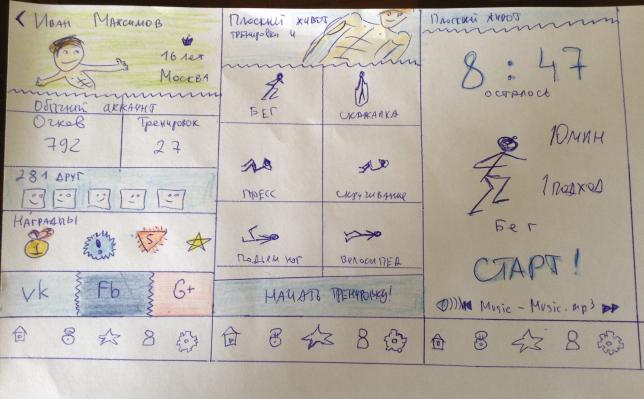 Иван Максимов
16 лет
Москва
Обычный аккаунт
Очков
792
Тренировок
27
281 друг
Награды
1
5
Vk
Fb
G+
Плоский живот
тренировки
Бег
Скакалка
Пресс
Скручивание
Подъем ног
Велосипед
Начать тренировку!
Плоский живот
8:47
осталось
10 мин
1 подход
Бег
Старт!
Music - Music.mp3